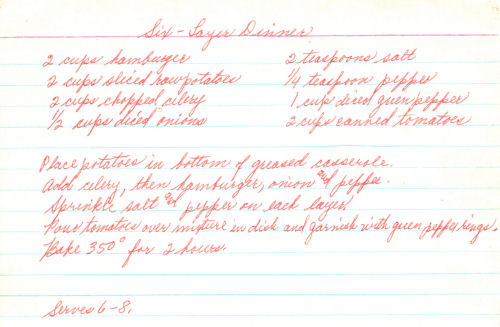 Six-Layer Dinner
2 cups hamburger
2 cups sliced raw potatoes
2 cups chopped celery
1/2 cups diced onions
2 teaspoons salt
1/4 teaspoon pepper
1 cup diced green pepper
2 cups canned tomatoes
Place potatoes in bottom of greased casserole.
Add celery, then hamburger, onion and pepper.
Sprinkle salt and pepper on each layer.
Pour tomatoes over mixture in dish and garnish with green pepper rings.
Bake 350° for 2 hours.
Serves 6-8.